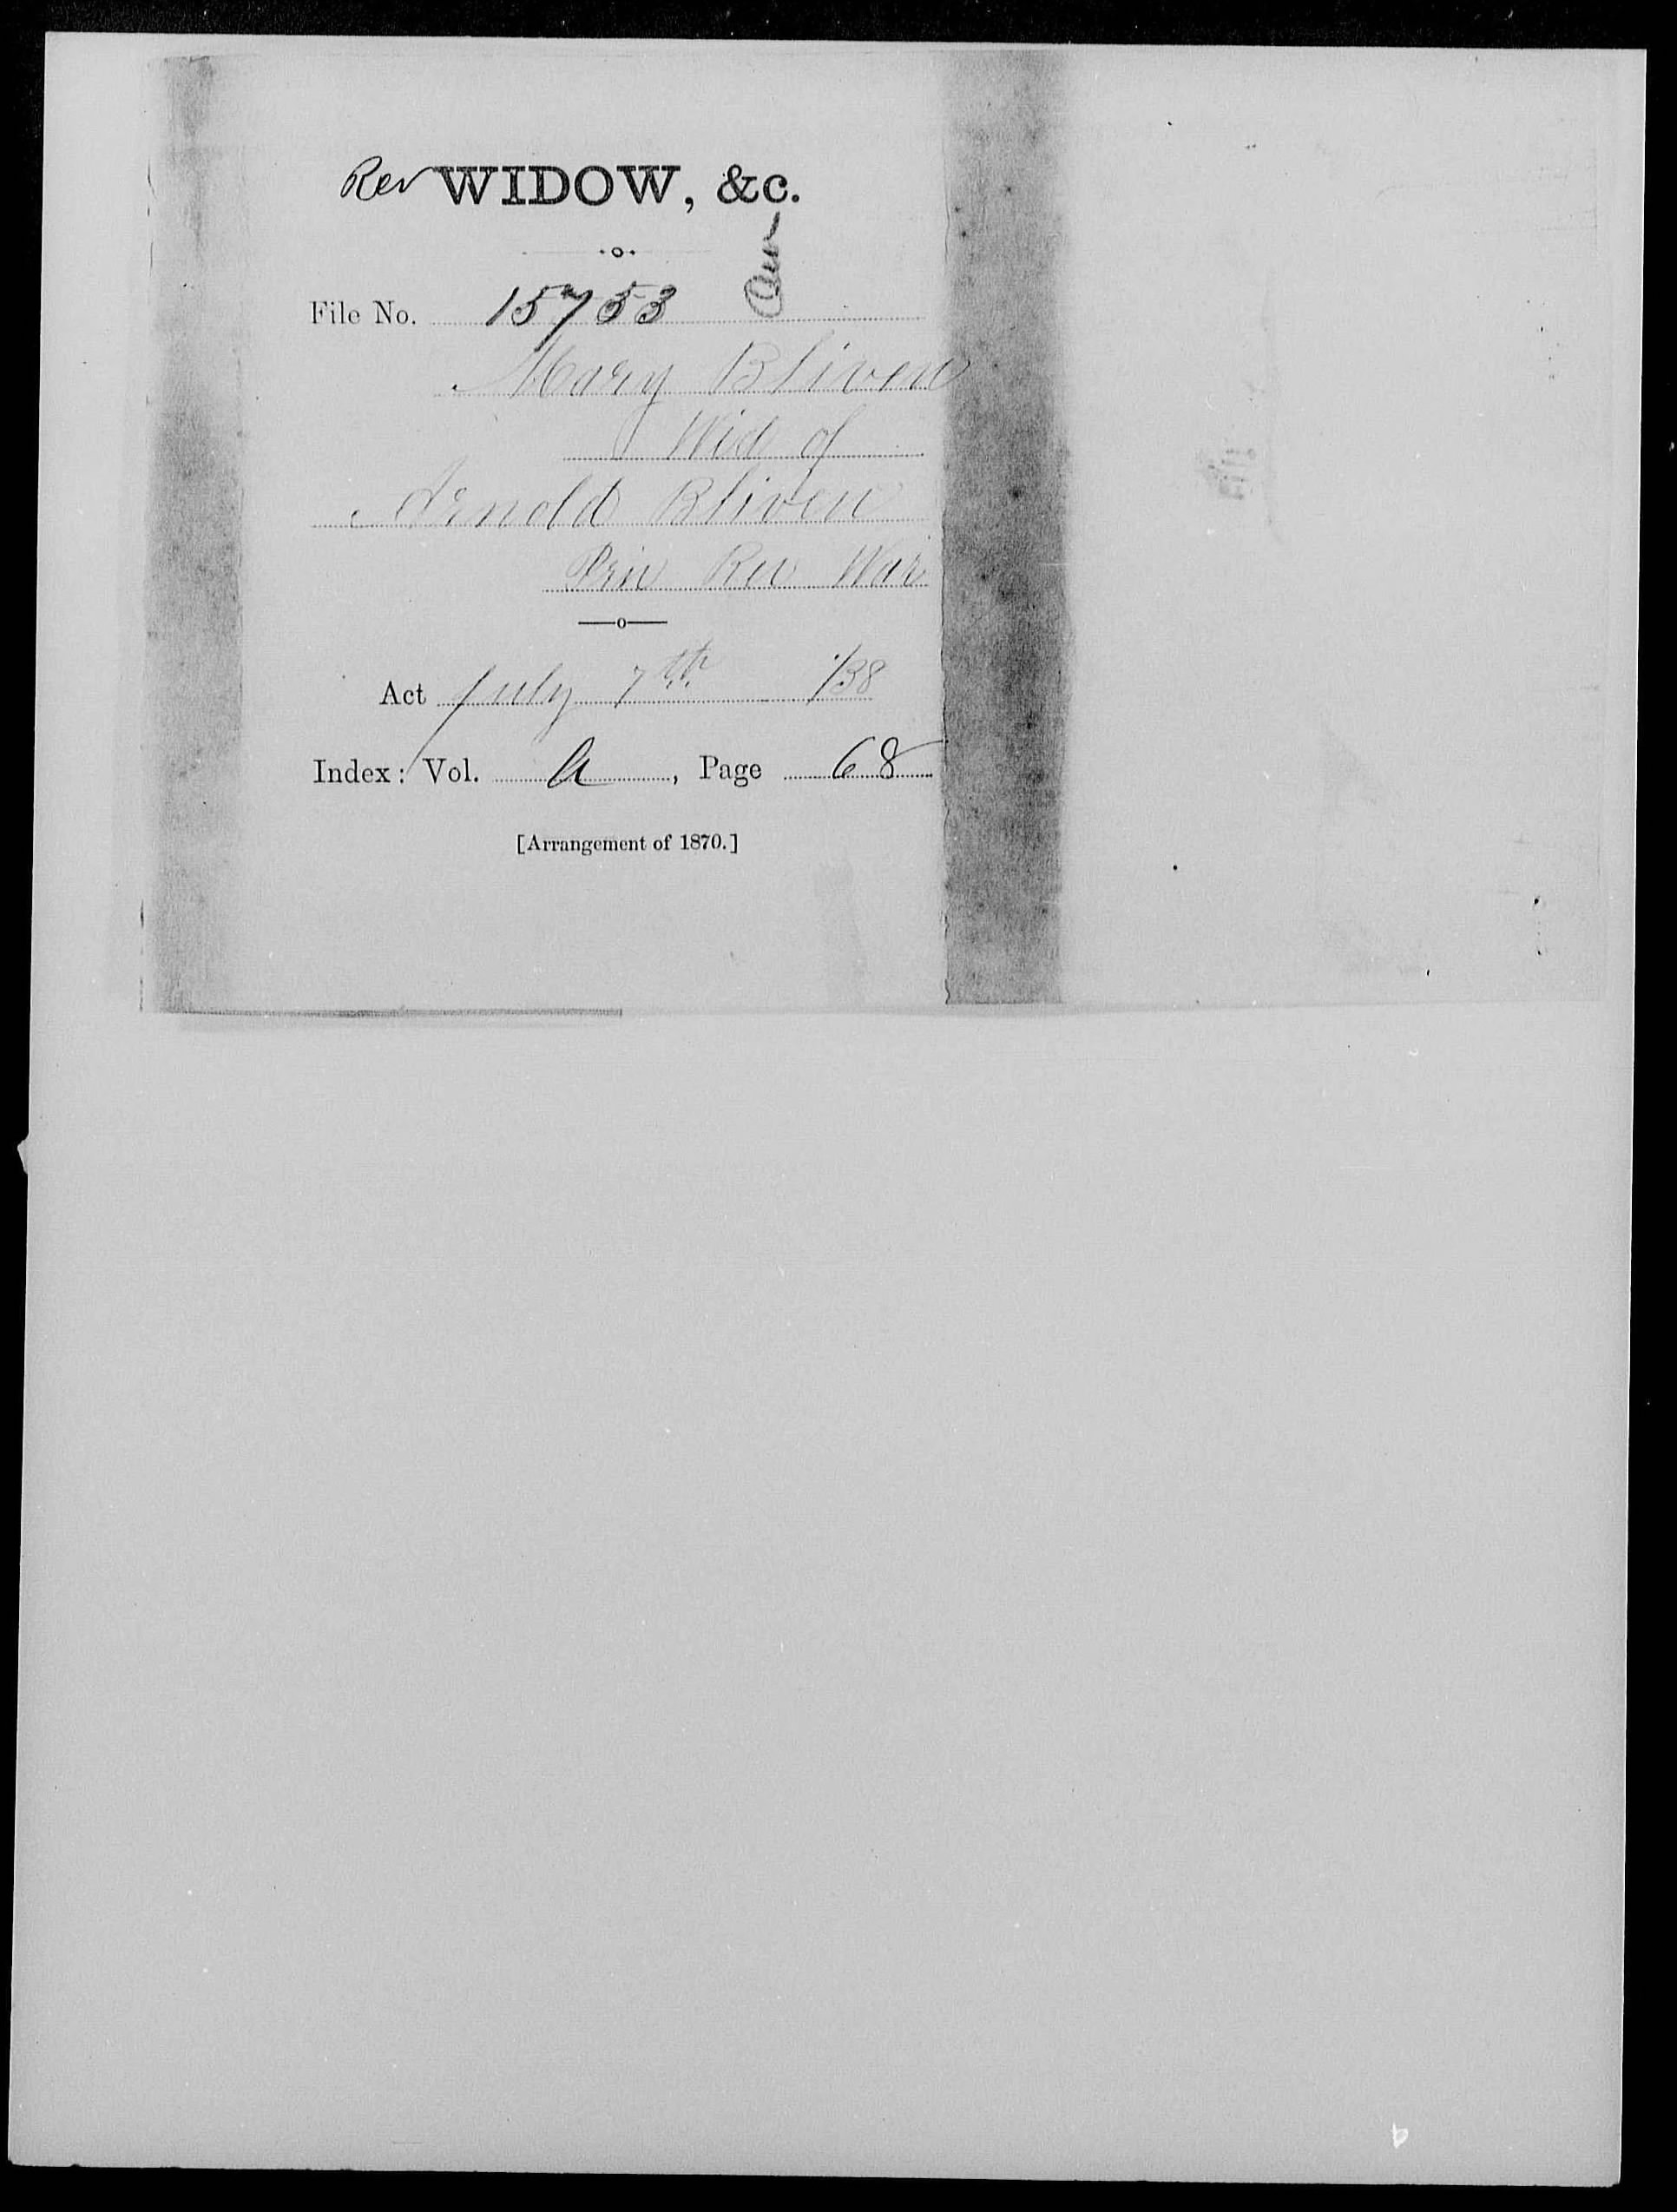 Rev WIDOW, &c.
File No. 15753
Mary Bliven
Wid of
Arnold Bliven
Priv Rev War
Act July 7th /38
Index: Vol. A, Page 68
[Arrangement of 1870.]